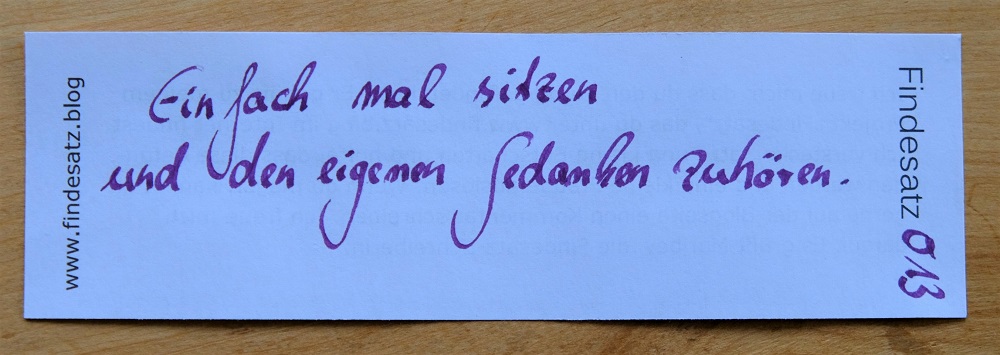 www.findesatz.blog
Einfach mal sitzen
und den eigenen Gedanken zuhören.
Findesatz 013